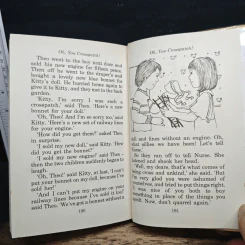 Oh, You Crosspatch!
Then went to the boy next door and
sold his new engine for fifteen pence.
Then off he went to the draper's and
bought a lovely new blue bonnet for
Kitty's doll. He hurried home again to
give it to Kitty, and they met in the back
garden.
'Kitty, I'm sorry I was such a
crosspatch,' said Theo. 'Here's a new
bonnet for your doll.'
'Oh, Theo! And I'm so sorry, too,' said
Kitty. 'Here's a new set of railway lines
for your engine.'
'How did you get them?' asked Theo,
in surprise.
'I sold my new doll,' said Kitty. 'How
did you get the bonnet?'
'I sold my new engine!' said Theo –
then the two children suddenly began to
laugh.
'Oh, Theo!' said Kitty, at last, 'I can't
put your bonnet on my doll, because I've
sold her!'
'And I can't put my engine on your
railway lines because I've sold it too!'
said Theo. 'We've got a bonnet without a
190
Oh, You Crosspatch!
doll and lines without an engine. Oh,
what sillies we have been! Let's tell
Nurse.'
So they ran off to tell Nurse. She
smiled and shook her head.
'Well, my dears, that's what comes of
being cross and unkind,' she said. 'But
very glad you were ashamed of
yourselves, and tried to put things right.
It was nice of you both to buy
anything in place of the things you
spoilt. Now, don't quarrel again.'
191